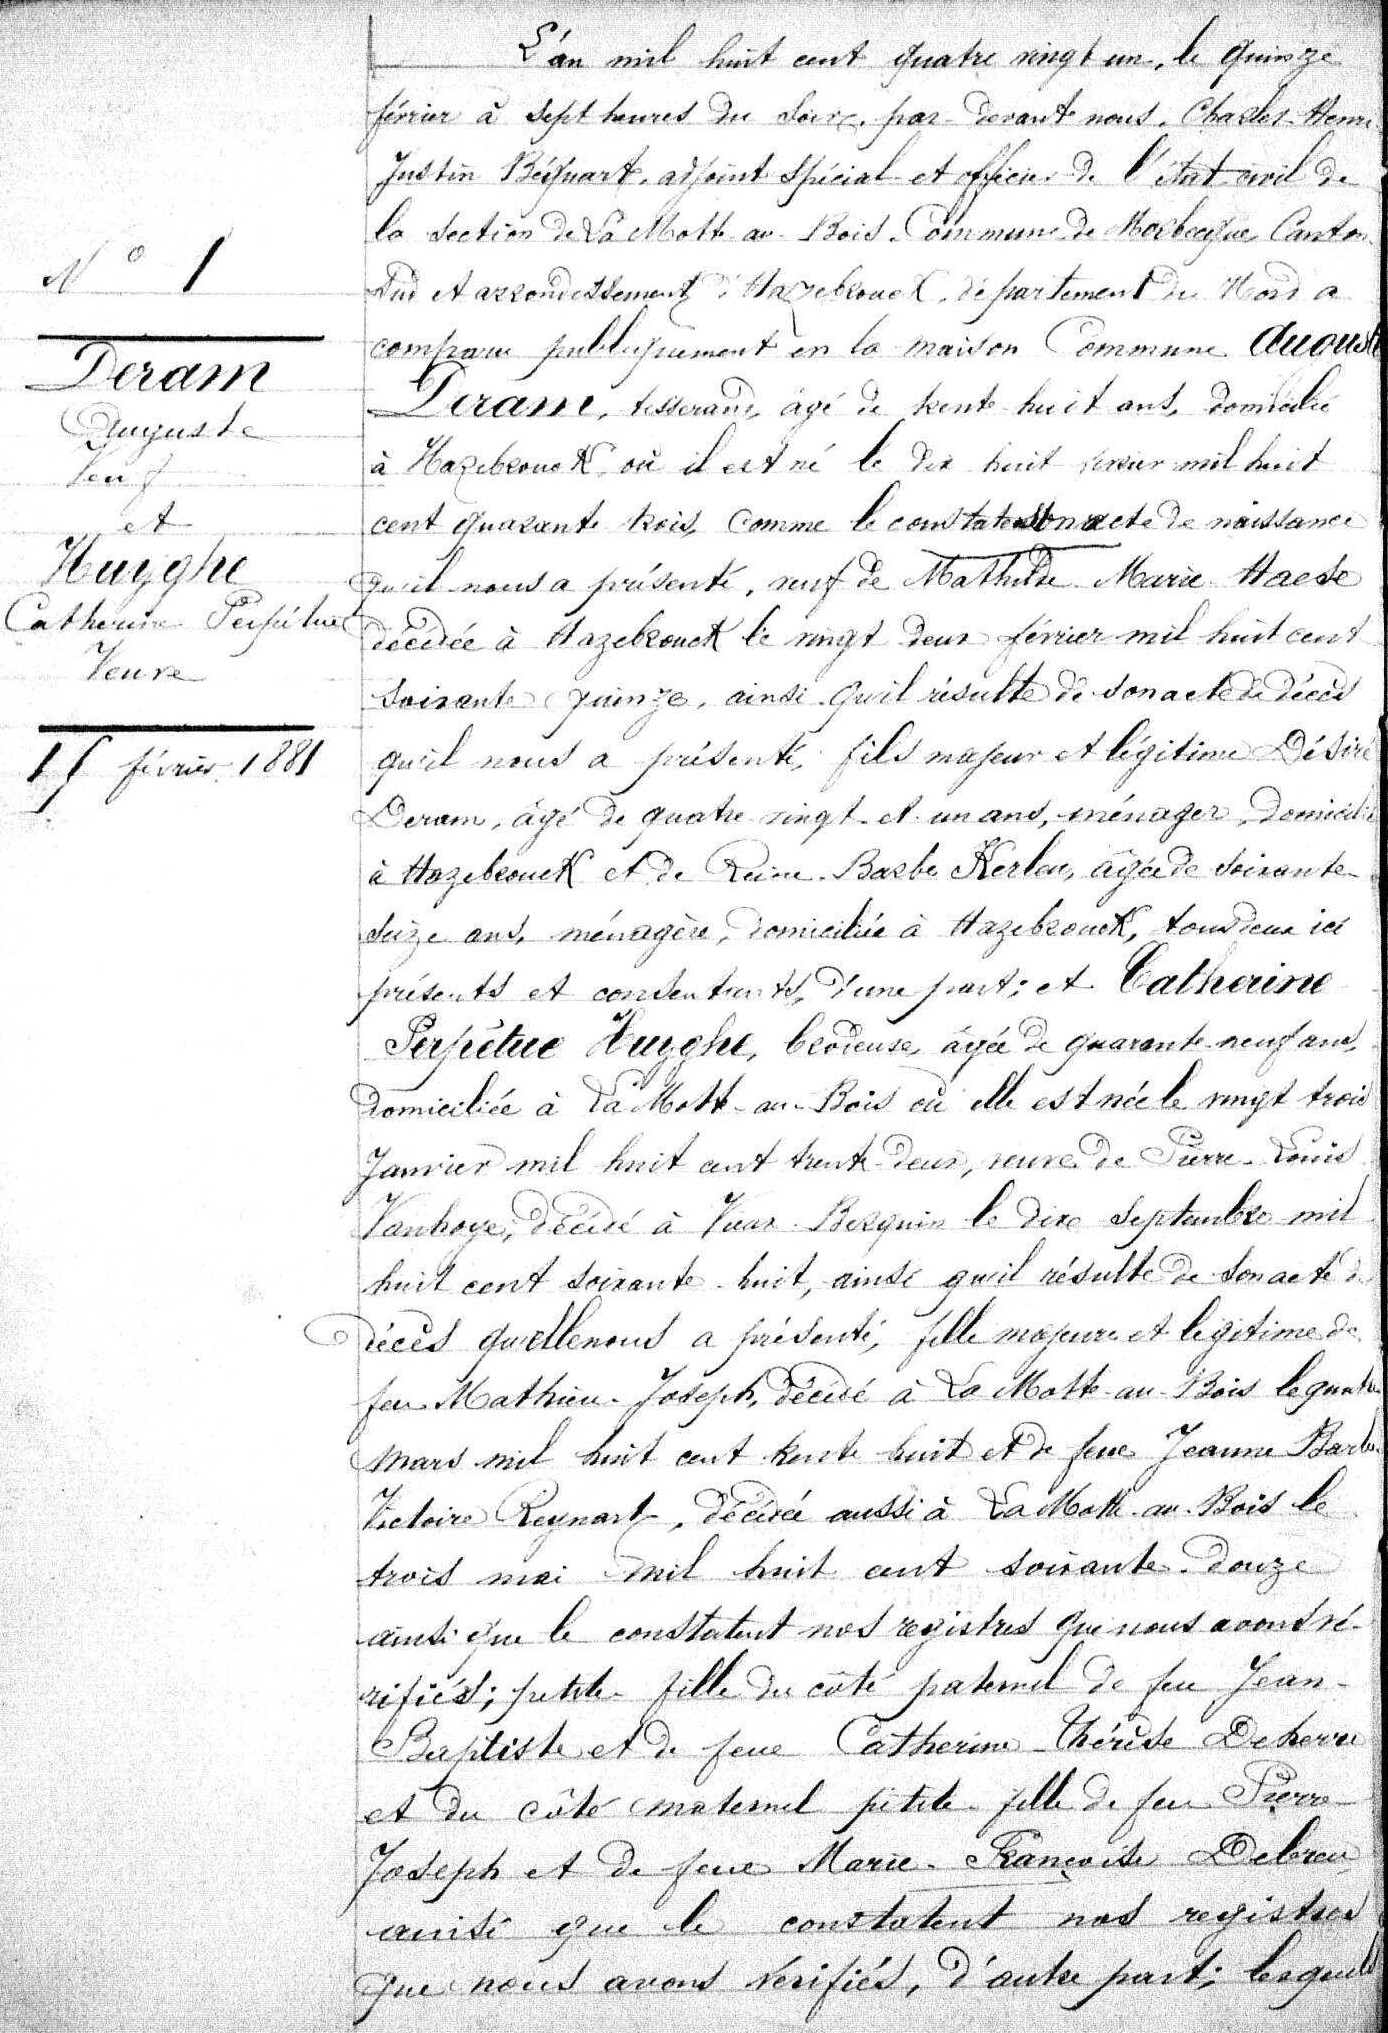 N° 1
Deram
Auguste
Veuf
et
Huyghe
Catherine Perpétue
Veuve
15 février 1881
L'an mil huit cent quatre vingt un, le quinze
février à sept heures du soir, par devant nous, Charles Henri
Justin Béquart, adjoint spécial et officier de l'état civil de
la section de La Motte au Bois, Commune de Morbecque, Canton
Sud et arrondissement d'Hazebrouck, département du Nord a
comparu publiquement en la maison Commune Auguste
Deram, tisserand, âgé de trente huit ans, domicilié
à Hazebrouck où il est né le dix huit mil huit
cent quarante trois, comme le constate son acte de naissance
qu'il nous a présenté, veuf de Mathilde Marie Haese
décédée à Hazebrouck le vingt deux février mil huit cent
soixante quinze, ainsi qu'il résulte de son acte de décès
qu'il nous a présenté, fils majeur et légitime Désiré
Deram, âgé de quatre vingt et un ans, ménager, domicilié
à Hazebrouck et de Reine Barbe Kerleu, âgée de soixante
seize ans, ménagère, domiciliée à Hazebrouck, tous deux ici
présents et consentants, d'une part; et Catherine
Perpétue Huyghe, brodeuse, âgée de quarante neuf ans,
domiciliée à La Motte-au-Bois où elle est née le vingt trois
Janvier mil huit cent trente-deux, veuve de Pierre-Louis
Vanhoye, décédé à Vieux-Berquin le dix septembre mil
huit cent soixante-huit, ainsi qu'il résulte de son acte de
décès qu'elle nous a présenté, fille majeure et légitime de
feu Mathieu-Joseph, décédé à La Motte-au-Bois le quatre
mars mil huit cent trente huit et de feue Jeanne Barbe
Victoire Reynart, décédée aussi à La Motte-au-Bois le
trois mai mil huit cent soixante-douze
ainsi que le constatent nos registres que nous avons vé-
rifiés; petite-fille du côté paternel de feu Jean-
Baptiste et de feue Catherine-Thérèse Deherre
et du côté maternel petite-fille de feu Pierre
Joseph et de feue Marie-Françoise Debreu
ainsi que le constatent nos registres
que nous avons vérifiés, d'autre part; lesquels